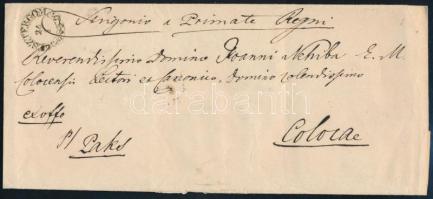 Strigonio a Primate Regni
Reverendissimo Domino Joanni Nehiba E. M.
Colocensis Lectori et Canonico, Domino Colendissimo
exoffo
p/ Paks
Colocae
darabanth